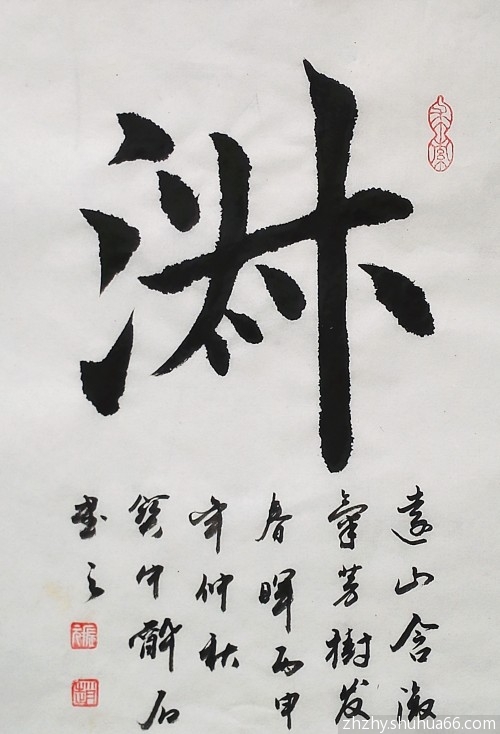 淑
遠山含淑
氣芳樹發
春暉丙申
年仲秋
中醉石
書之
zhzhy.shuhua66.com